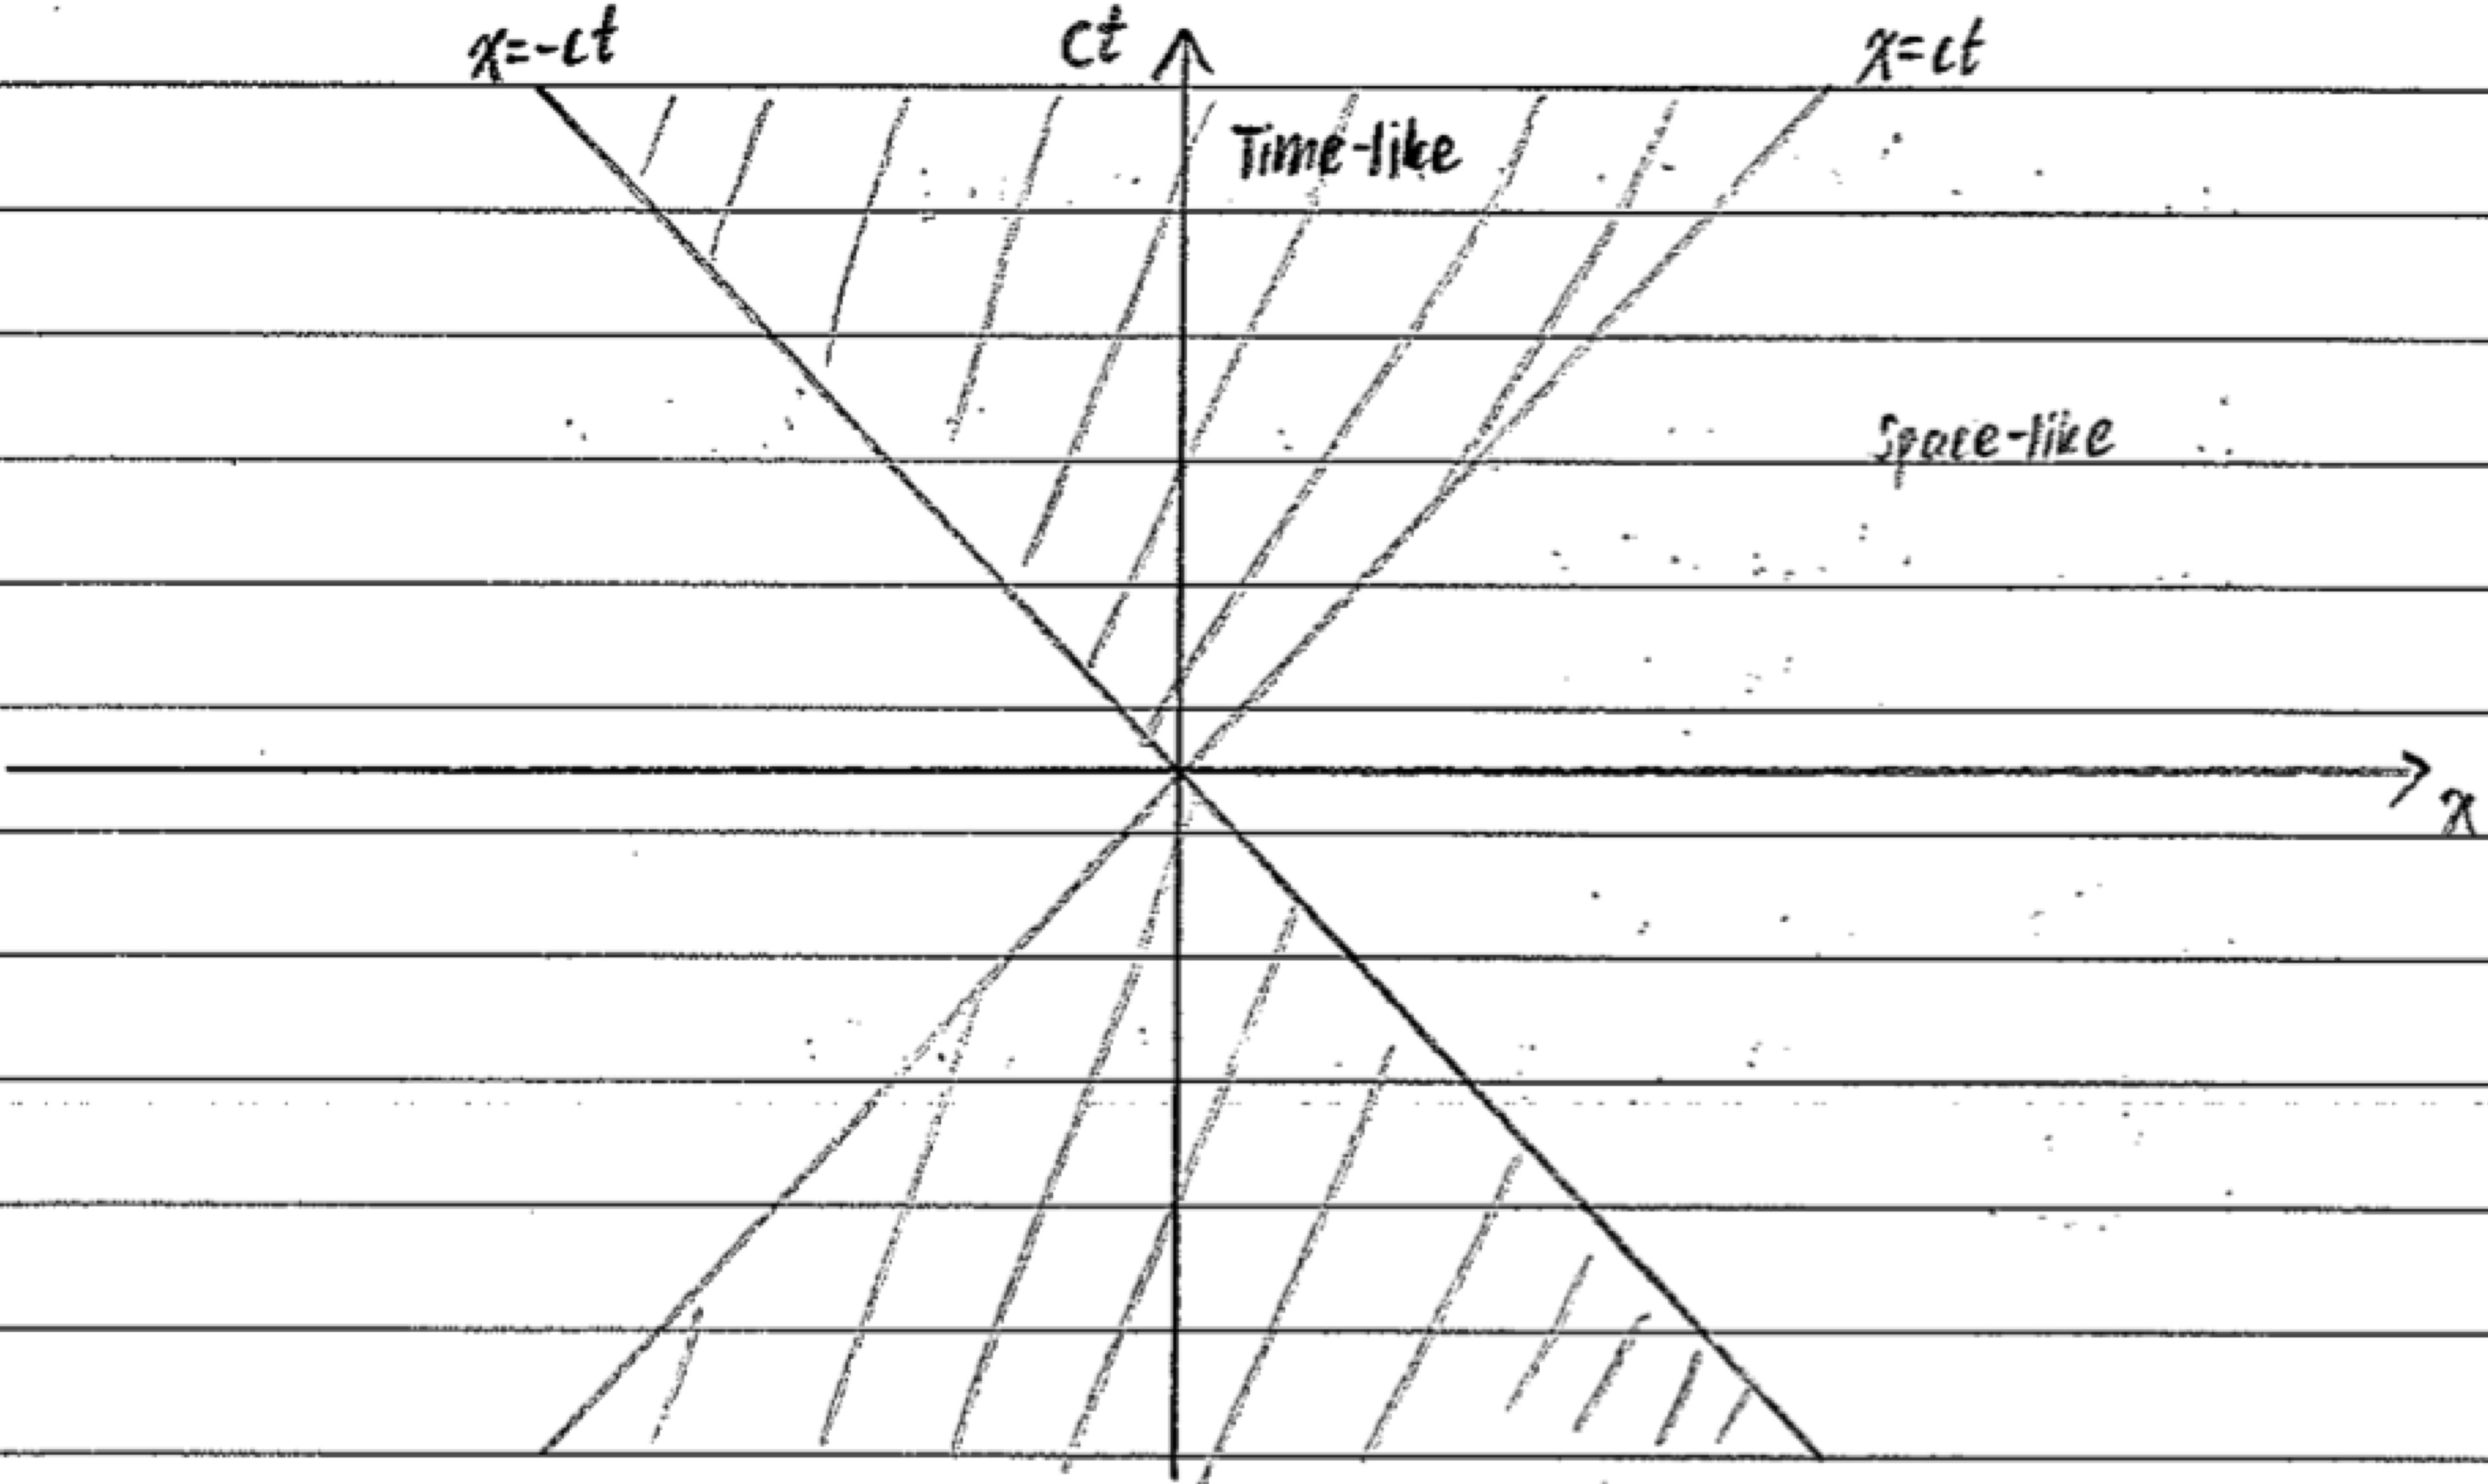 x=-ct
ct
x=ct
Time-like
Space-like
x